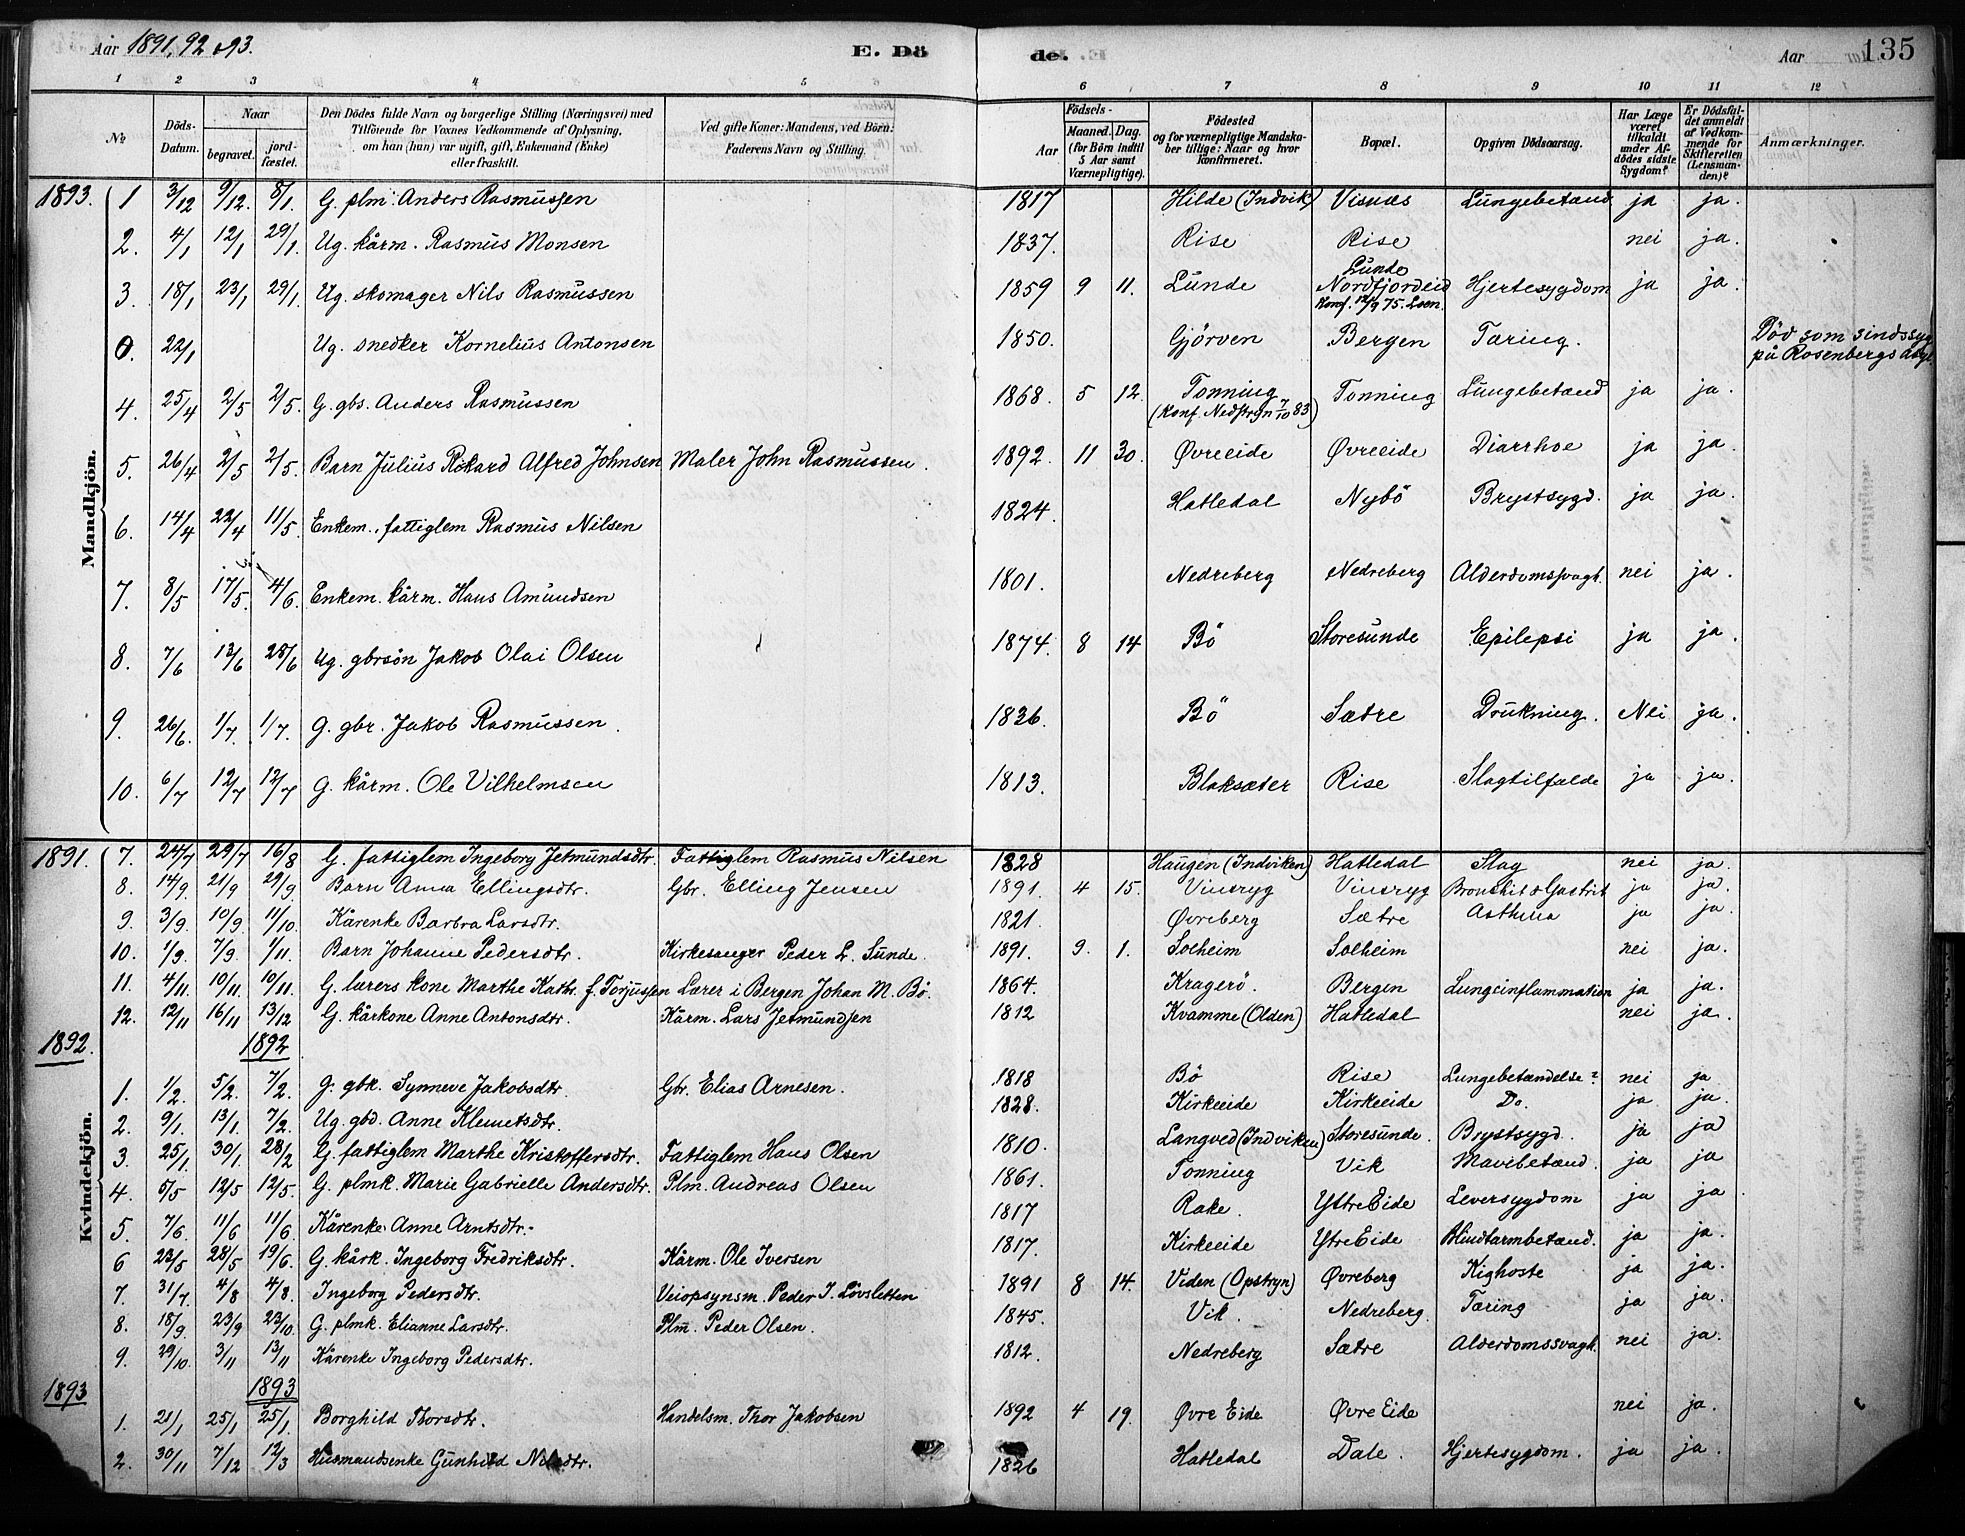 Aar 1891, 92 & 93.
E. Dö
de.
Aar
135
1 2 3 4 5 6 7 8 9 10 11 12
No | Döds-Datum. | Naar begravet. | jord-fæstet. | Den Dödes fulde Navn og borgerlige Stilling (Næringsvei) med Tilföiende for Voxnes Vedkommende af Oplysning, om han (hun) var ugift, gift, Enkemand (Enke) eller fraskilt. | Ved gifte Koner: Mandens, ved Börn: Faderens Navn og Stilling. | Aar | Födsels- Maaned. Dag. (for Börn indtil 5 Aar samt Værnepligtige). | Födested og for værnepligtige Mandskaber tillige: Naar og hvor konfirmeret. | Bopæl. | Opgiven Dödsaarsag. | Har Læge været tilkaldt under Afdödes sidste Sygdom? | Er Dödsfaldet anmeldt af Vedkommende for Skifteretten (Lensmanden)? | Anmærkninger.
Mandkjön.
1893. 1 3/12 9/12. 8/1. G. plm. Anders Rasmussen 1817 Hilde (Indvik) Visnæs Lungebetænd. ja ja.
2. 4/1 12/1 29/1. Ug. kårm. Rasmus Monsen 1837. Rise Rise nei ja.
3. 18/1 23/1 29/1. Ug. skomager Nils Rasmussen 1859 9 11. Lunde Lunde Nordfjordeid Konf. 12/9 75. Loen. Hjertesygdom ja ja.
0. 22/1 Ug. snedker Kornelius Antonsen 1850. Gjörven Bergen Tæring. Död som sindssyg på Rosenbergs Asyl.
4. 25/4 2/5 2/5. G. gbs. Anders Rasmussen 1868. 5 12. Tonning (Konf. Nedstryn 7/10 83) Tonning Lungebetænd ja ja.
5. 26/4 2/5 2/5. Barn Julius Rikard Alfred Johnsen Maler John Rasmussen. 1892. 11 30. Øvreeide Øvreeide Diarrhoe ja ja.
6. 14/4 22/4 11/5. Enkem. fattiglem Rasmus Nilsen 1824. Hatledal Nybö Brystsygd. ja ja.
7. 8/5 17/5. 4/6 Enkem. kårm. Hans Amundsen 1801. Nedreberg Nedreberg Alderdomssvagh. nei ja.
8. 7/6 13/6 28/6 Ug. gbrsön Jakob Olai Olsen 1874. 8 14 Bö Storesunde Epilepsi ja ja.
9. 26/6. 1/7. 1/7. G. gbr. Jakob Rasmussen. 1836. Bö Sætre Drukning. Nei ja.
10. 6/7 12/7 12/7 G. kårm. Ole Vilhelmsen 1813. Blaksæter Rise Slagtilfælde ja ja.
Kvindekjön.
1891. 7. 24/7 29/7 16/8 G. fattiglem Ingeborg Jetmundsdtr. Fattiglem Rasmus Nilsen 1828 Haugen (Indviken) Hatledal Slag nei ja.
8. 14/9. 21/9 29/9. Barn Anna Ellingsdtr. Gbr. Elling Jensen 1891. 4 15. Vinsryg Vinsryg Bronkhit & Gastrit ja ja.
9. 3/9. 10/9. 11/10 Kårenke Barbra Larsdtr. 1821. Øvreberg Sætre Asthma ja ja.
10. 1/9. 7/9. 1/11. Barn Johanne Pedersdtr. Kirkesanger Peder L. Sunde. 1891. 9. 1. Solheim Solheim nei ja.
11. 4/11. 10/11. 10/11. G. lærers kone Marthe Kathr. f. Torjussen Lærer i Bergen Johan M. Bö. 1864. Kragerö. Bergen Lungeinflammation ja ja.
12. 12/11 16/11 13/12 G. kårkone Anne Antonsdtr. Kårm. Lars Jetmundsen 1812 Kvamme (Olden) Hatledal nei ja.
1892. 1892
1. 1/2. 5/2. 7/2. G. gbk. Synneve Jakobsdtr. Gbr. Elias Arnesen. 1818 Bö Rise Lungebetændelse? nei ja
2. 9/1. 13/1. 7/2. Ug. gbd. Anne Klemetsdtr. 1828. Kirkeeide Kirkeeide Do. ja ja.
3. 25/1. 30/1. 28/2 G. fattiglem Marthe Kristoffersdtr. Fattiglem Hans Olsen 1810. Langved (Indviken) Storesunde. Brystsygd. ja ja
4. 5/5 12/5 12/5. G. plmk. Marie Gabrielle Andersdtr. Plm. Andreas Olsen 1861. Tonning Vik Mavebetænd. ja ja
5. 7/6. 11/6 11/6 Kårenke Anne Arntsdtr. 1817 Rake. Ytre Eide Leversygdom ja ja
6 23/5 28/5 19/6. G. kårk. Ingeborg Fredriksdtr. Kårm. Ole Iversen 1817. Kirkeeide Ytre Eide Blindtarmbetænd. ja ja.
7. 31/7. 4/8 4/8. Ingeborg Pedersdtr. Veiopsynsm. Peder J. Lövsletten 1891 8 14. Viden (Opstryn) Øvreberg Kighoste ja ja.
8. 18/9. 23/9 23/10. G. plmk. Elianne Larsdtr. Plm. Peder Olsen. 1845. Vik. Nedreberg. Tæring ja ja.
9. 29/10. 3/11 13/11 Kårenke Ingeborg Pedersdtr. 1812. Nedreberg Sætre Alderdomssvagh. nei ja.
1893 1893
1. 21/1 25/1 25/1. Borghild Thorsdtr. Handelsm. Thor Jakobsen 1892 4 19. Øvre Eide Øvre Eide nei ja.
2. 30/11 7/12 12/3 Husmandsenke Gunhild Nilsdtr. 1826 Hatledal Dale. Hjertesygdom. ja ja.